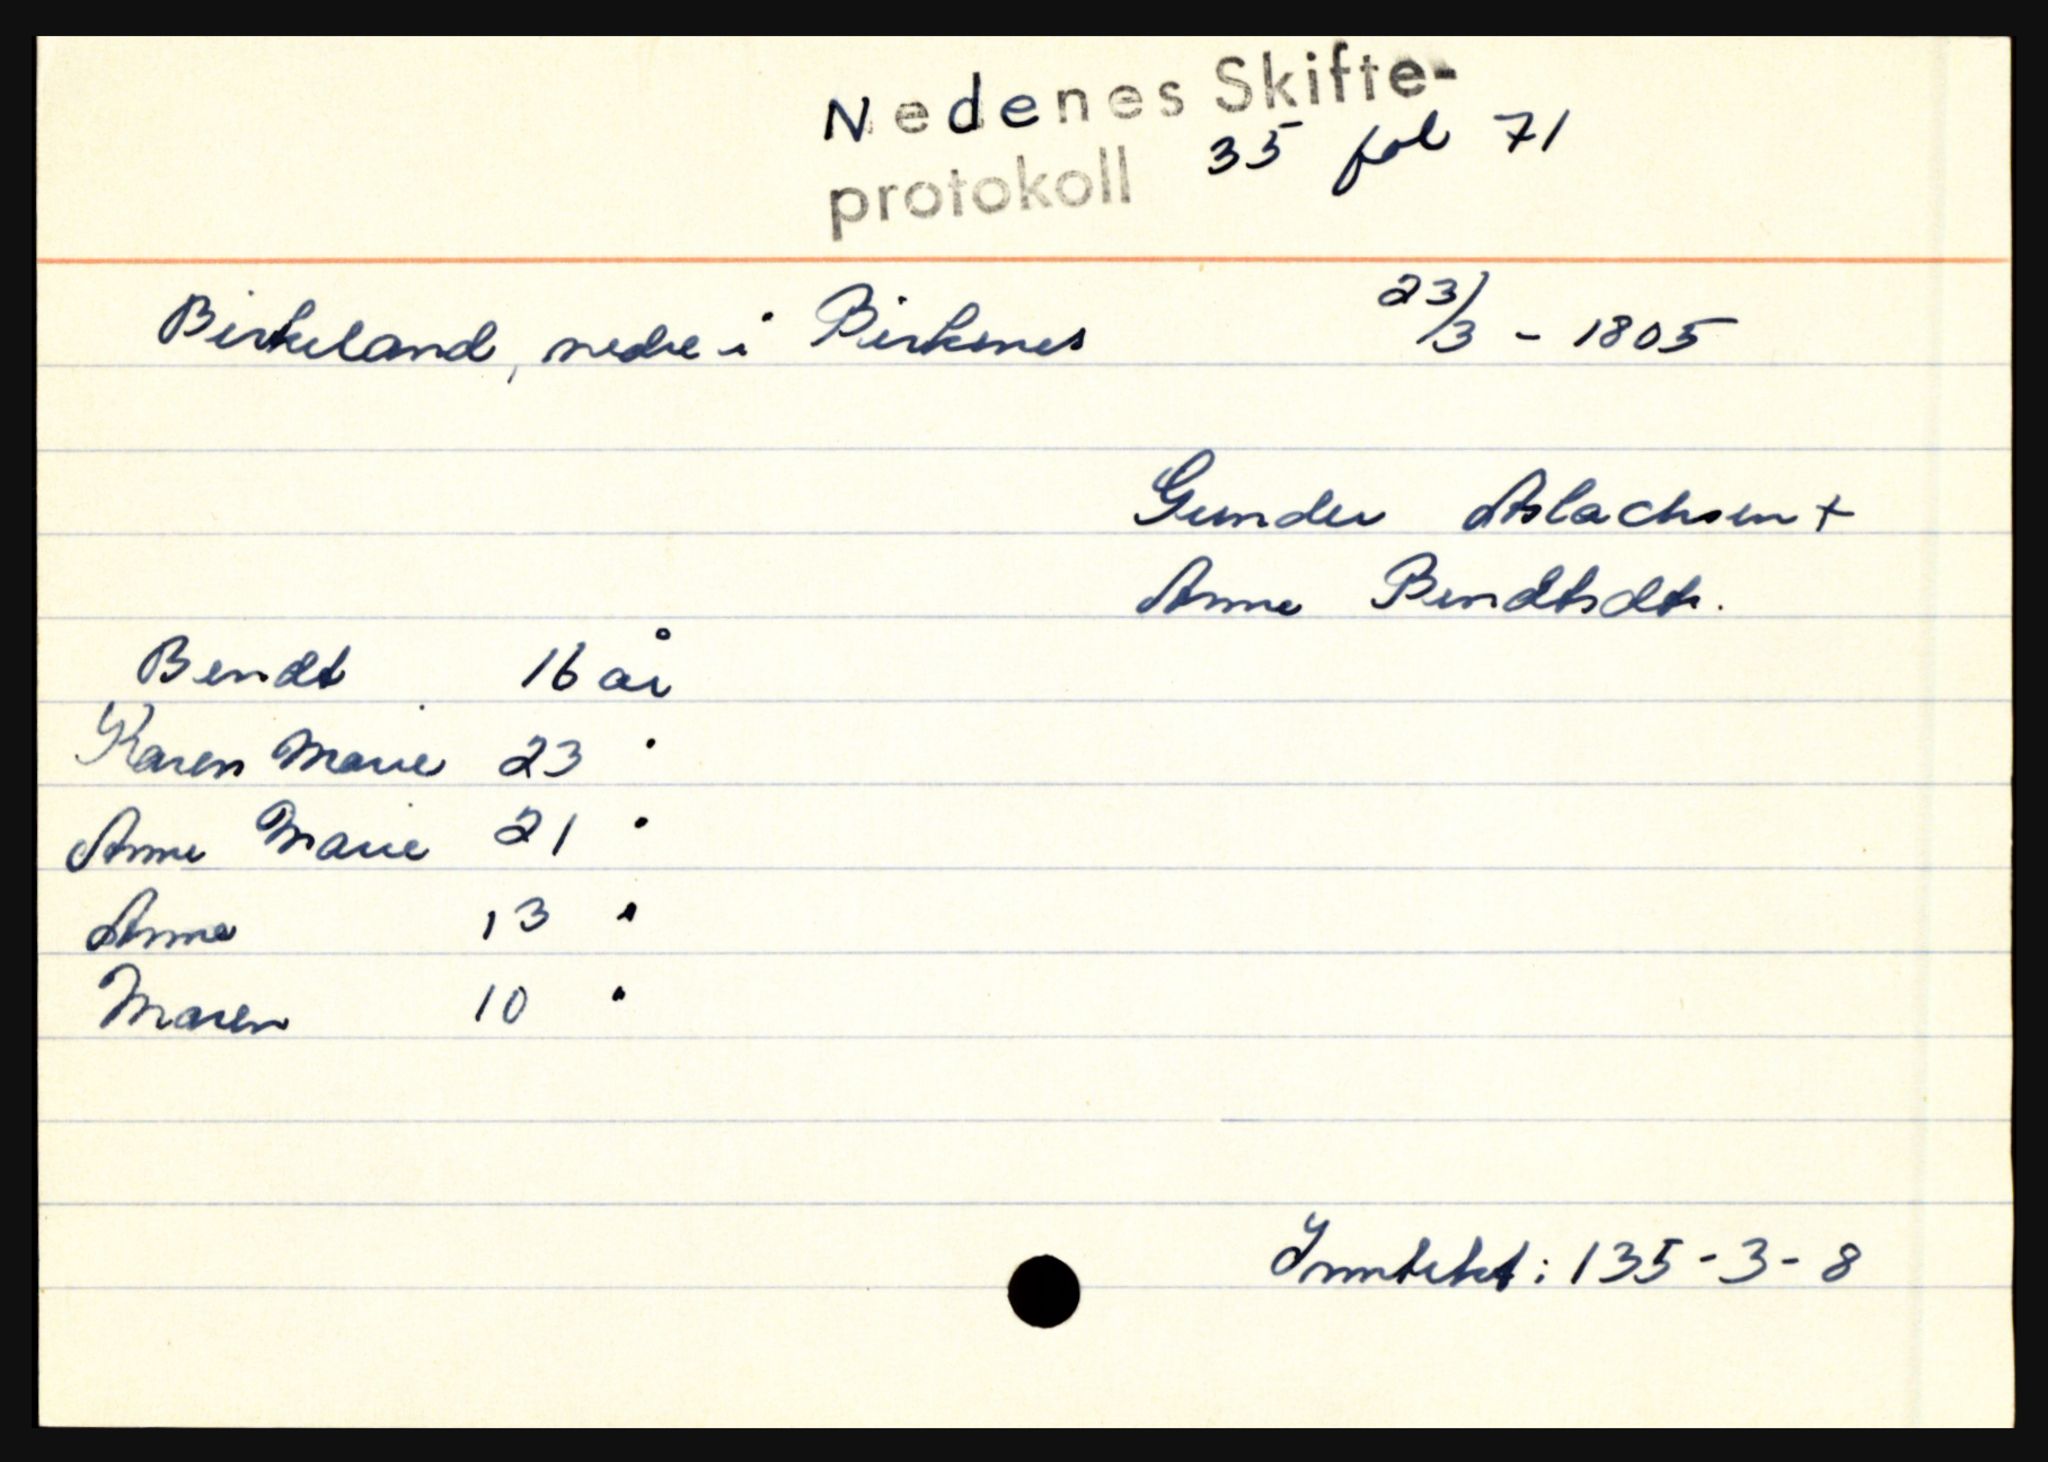 Nedenes Skifte-
protokoll 35 fol 71
Birkeland, nedre i Birkenes 23/3 - 1805
Gunder Aslachsen +
Anne Bendtsdtr.
Bendt 16 år
Karen Marie 23 "
Anne Marie 21 "
Anne 13 "
Maren 10 "
Inntekt: 135-3-8